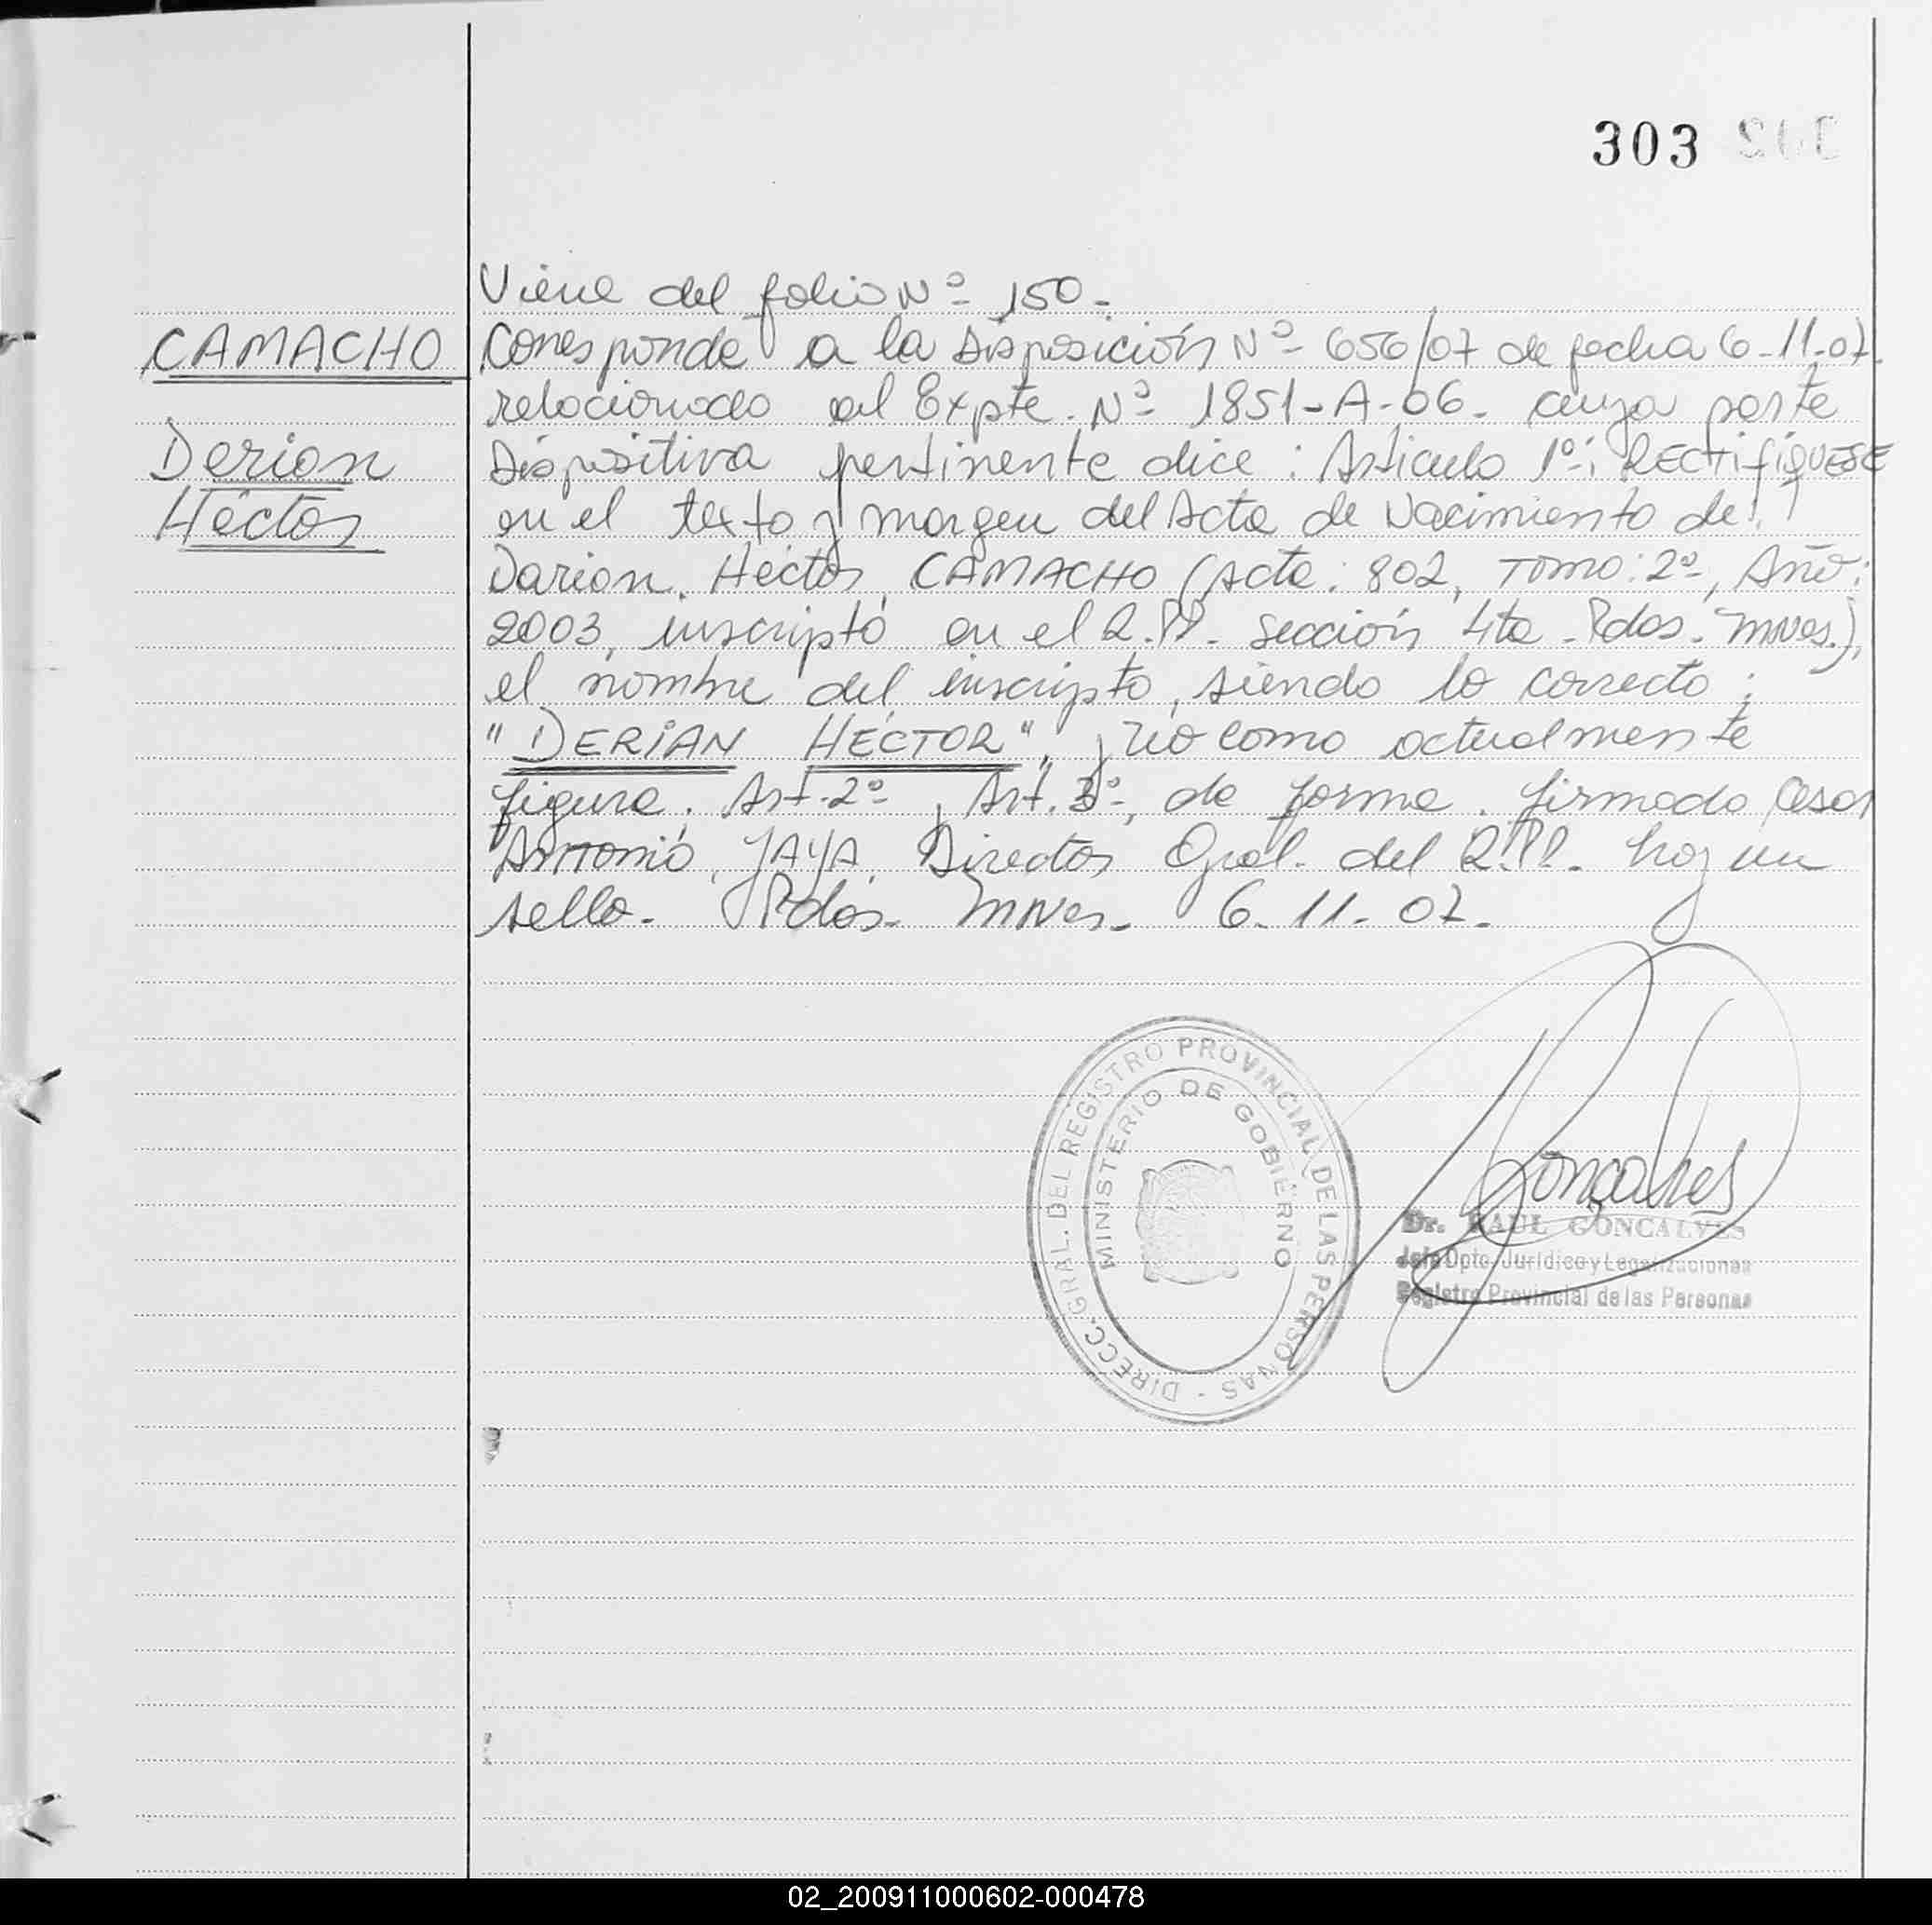 303
Viene del folio Nº 150.-
CAMACHO
Derian
Héctor
Corresponde a la Disposición Nº 656/07 de fecha 6-11-07.
relacionado al Expte. Nº 1851-A-06. cuya parte
Dispositiva pertinente dice: Articulo 1º: RECTIFÍQUESE
en el texto y margen del Acta de Nacimiento de:
Darian, Héctor, CAMACHO (Acta: 802, Tomo: 2º, Año:
2003, inscripto en el R.P.P. Sección 4ta - Pdas. Mnes.),
el nombre del inscripto, siendo lo correcto:
"DERIAN HÉCTOR", y no como actualmente
figura. Art. 2º, Art. 3º, de forma. firmado Cesar
Antonio, JAYA, Director Gral. del R.P.P. hay un
sello. Pdas. Mnes. 6-11-07.
DIRECC. GRAL. DEL REGISTRO PROVINCIAL DE LAS PERSONAS -
MINISTERIO DE GOBIERNO
Goncalves
Dr. RAUL GONCALVES
Jefe Dpto. Jurídico y Legalizaciones
Registro Provincial de las Personas
02_200911000602-000478